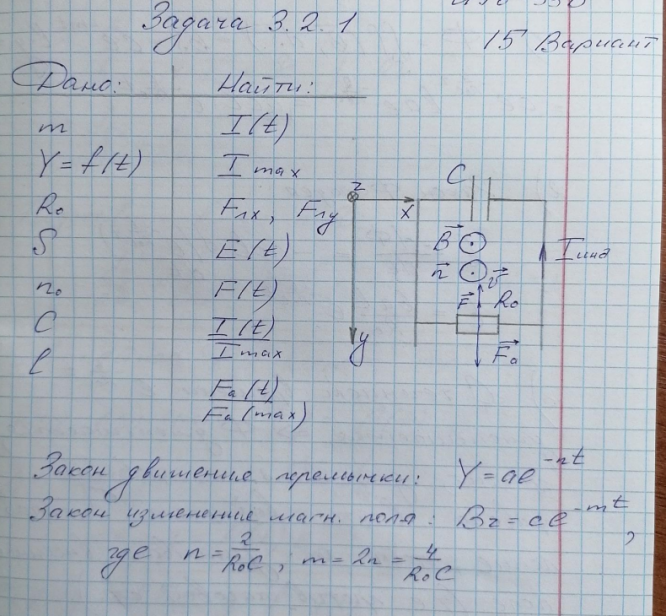 Задача 3.2.1
15 Вариант
Дано: Найти:
m I(t)
Y = f(t) I max
R₀ Fлx, Fлy
S E(t)
n₀ F(t)
C I(t)/Imax
l Fa(t)/Fa(max)
z
x
y
C
B⃗
n⃗
v⃗
F⃗ R₀
F⃗a
Iинд
Закон движения перемычки: Y = ae^-nt
Закон изменения магн. поля: Bz = ce^-mt,
где n = 2/R₀C, m = 2n = 4/R₀C